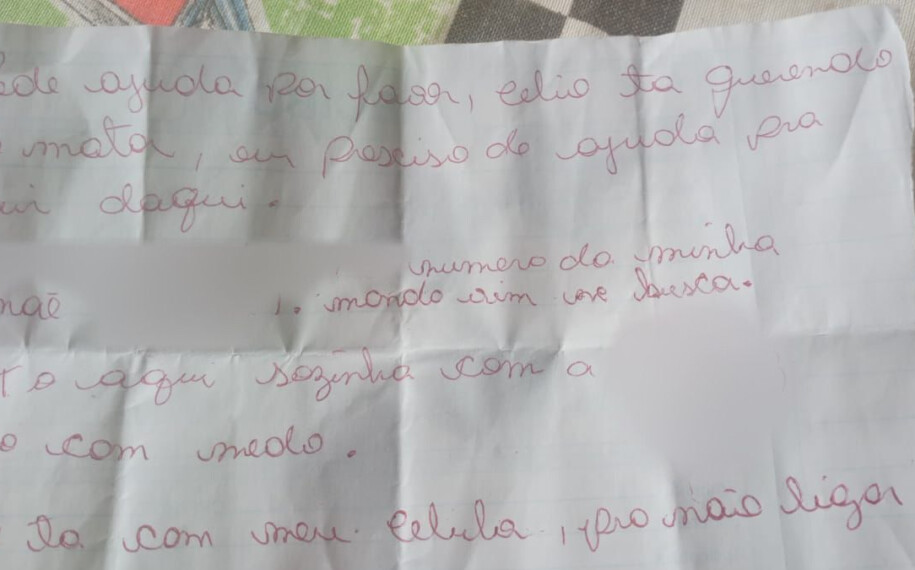 ede ajuda por favor, celio ta querendo
mata, eu presciso de ajuda pra
ir daqui.
numero da minha
mãe 1. mando vim me busca.
to aqui sozinha com a
o com medo.
ta com meu celula, pro não liga